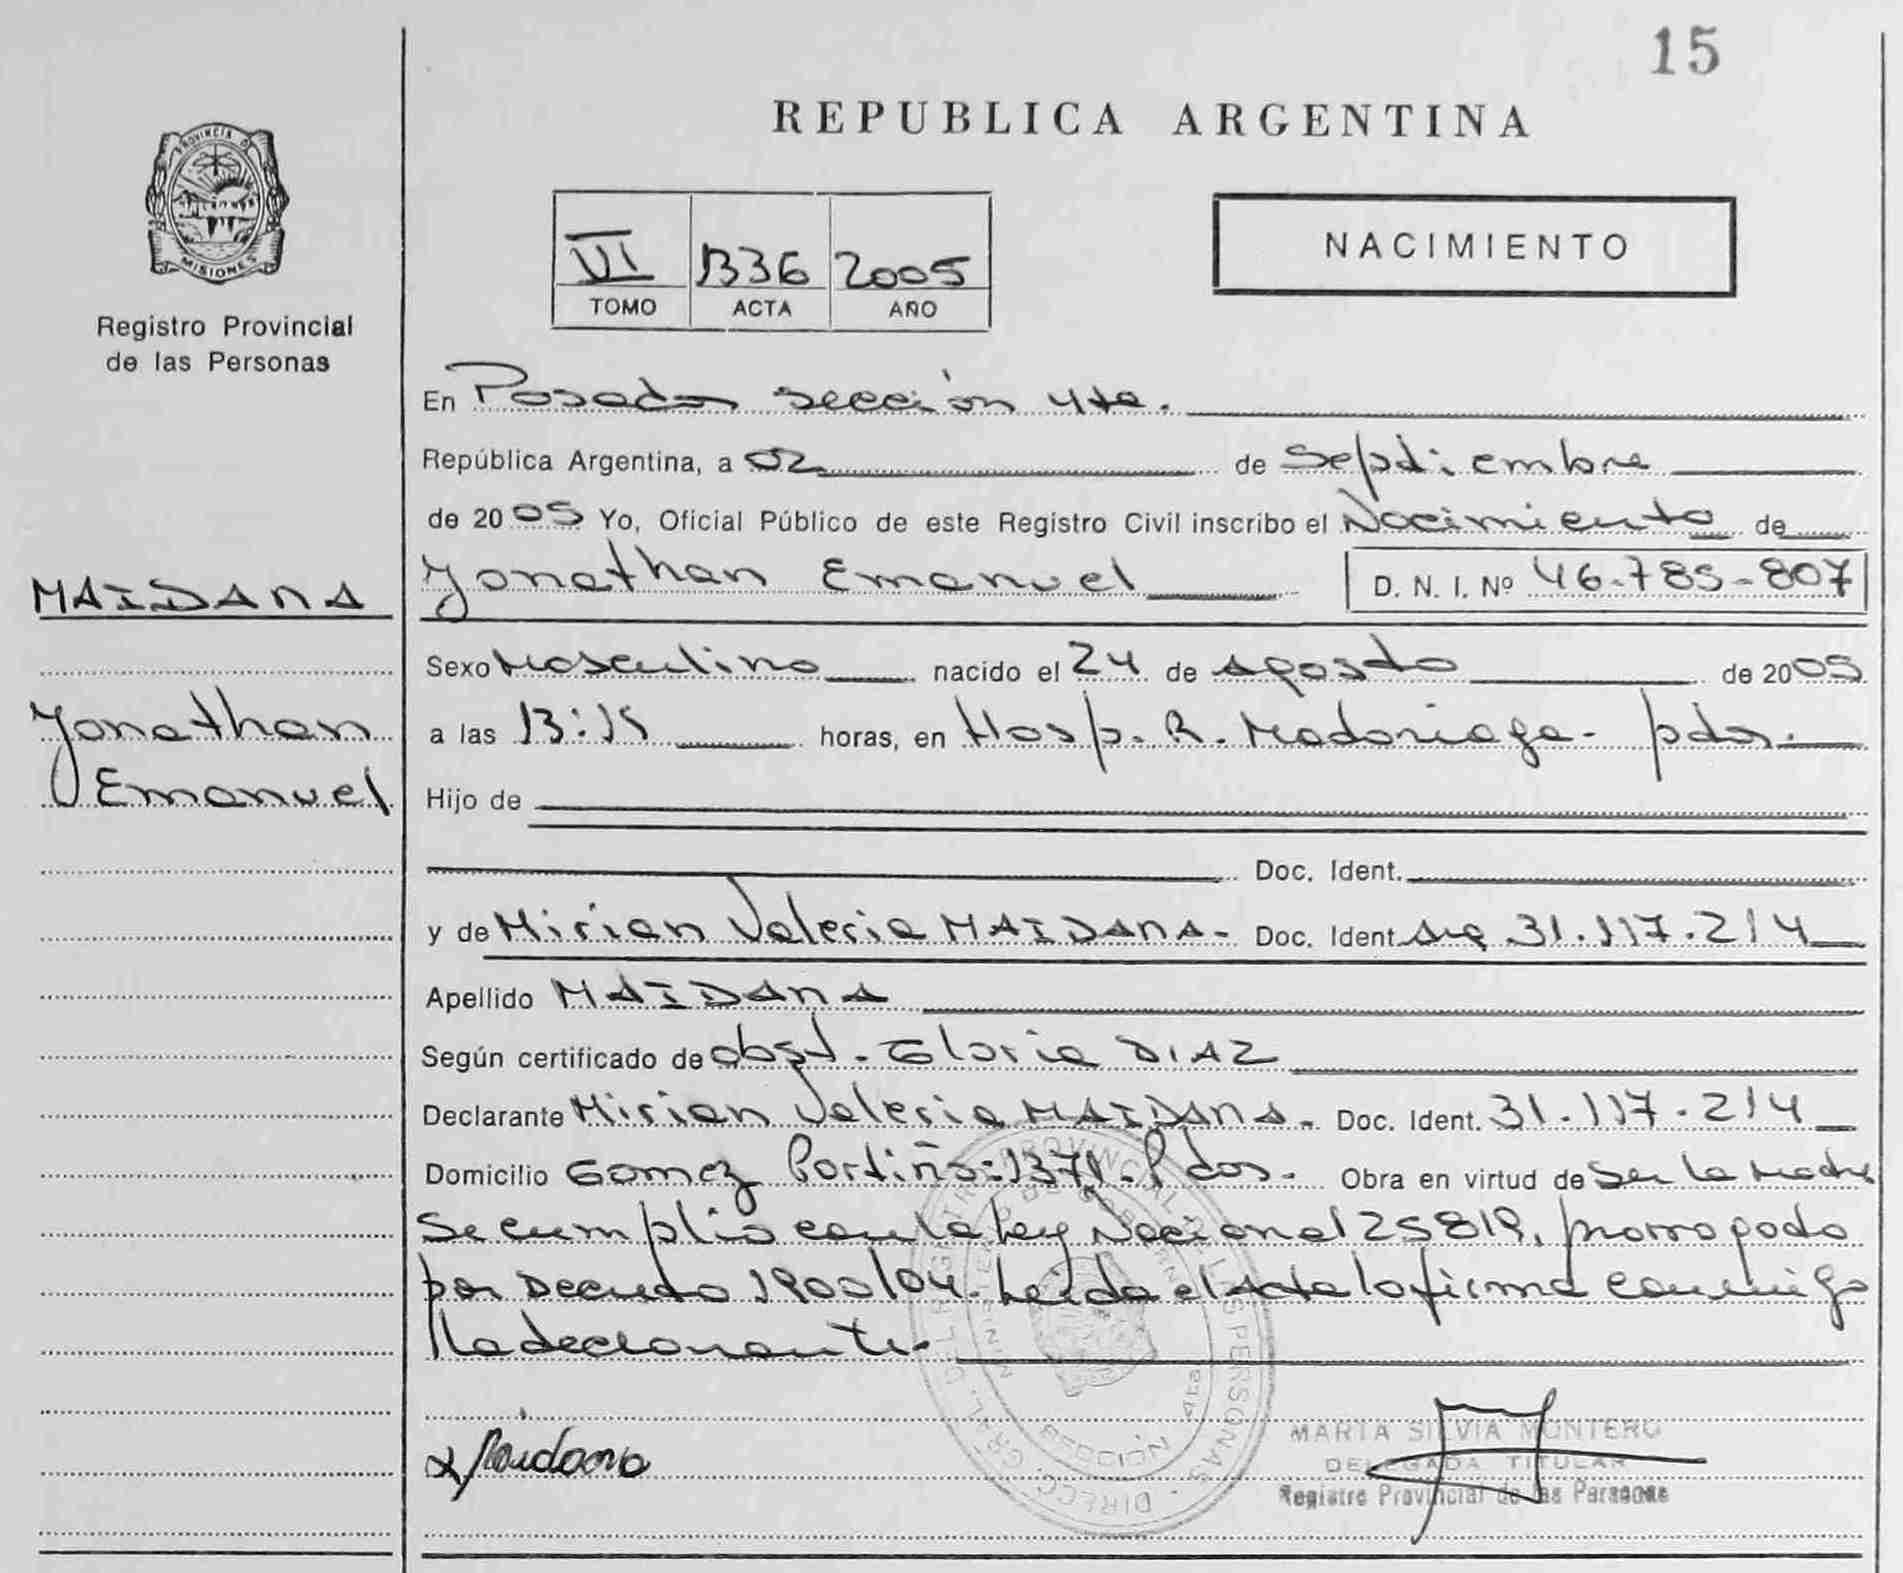 15
REPUBLICA ARGENTINA
PROVINCIA DE
MISIONES
Registro Provincial
de las Personas
VI 1336 2005
TOMO ACTA AÑO
NACIMIENTO
En Posadas sección 4ta.
República Argentina, a 02 de Septiembre
de 2005 Yo, Oficial Público de este Registro Civil inscribo el Nacimiento de
MAIDANA
Jonathan Emanuel D. N. I. Nº 46.785-807
Sexo Masculino nacido el 24 de Agosto de 2005
Jonathan
Emanuel
a las 13:15 horas, en Hosp. R. Madariaga - pdas.
Hijo de
Doc. Ident.
y de Mirian Valeria MAIDANA - Doc. Ident Arg 31.117.214
Apellido MAIDANA
Según certificado de obst. Gloria DIAZ
Declarante Mirian Valeria MAIDANA - Doc. Ident. 31.117.214
Domicilio Gomez Portiño: 1371. Pdas. Obra en virtud de Ser la Madre
Se cumplio con la Ley Nacional 25819, prorrogado
por Decreto 1900/04. Leida el Acta la firma conmigo
la declarante.
Maidana
MARTA SILVIA MONTERO
DELEGADA TITULAR
Registro Provincial de las Personas
DIRECC. GRAL. DEL REGISTRO PROVINCIAL DE LAS PERSONAS
SECCIÓN 4ta